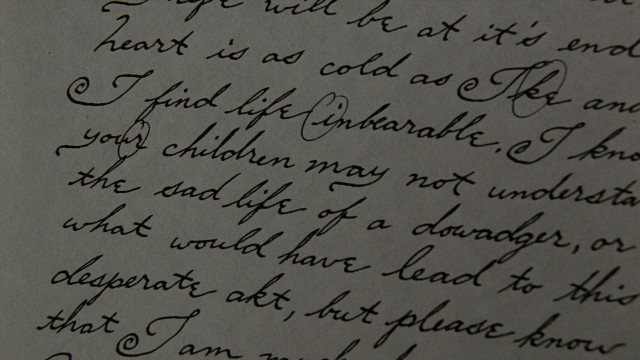 I hope will be at it's end
heart is as cold as Ike and
I find life inbearable. I kno
your children may not understa
the sad life of a dowadger, or
what would have lead to this
desperate akt, but please know
that I am